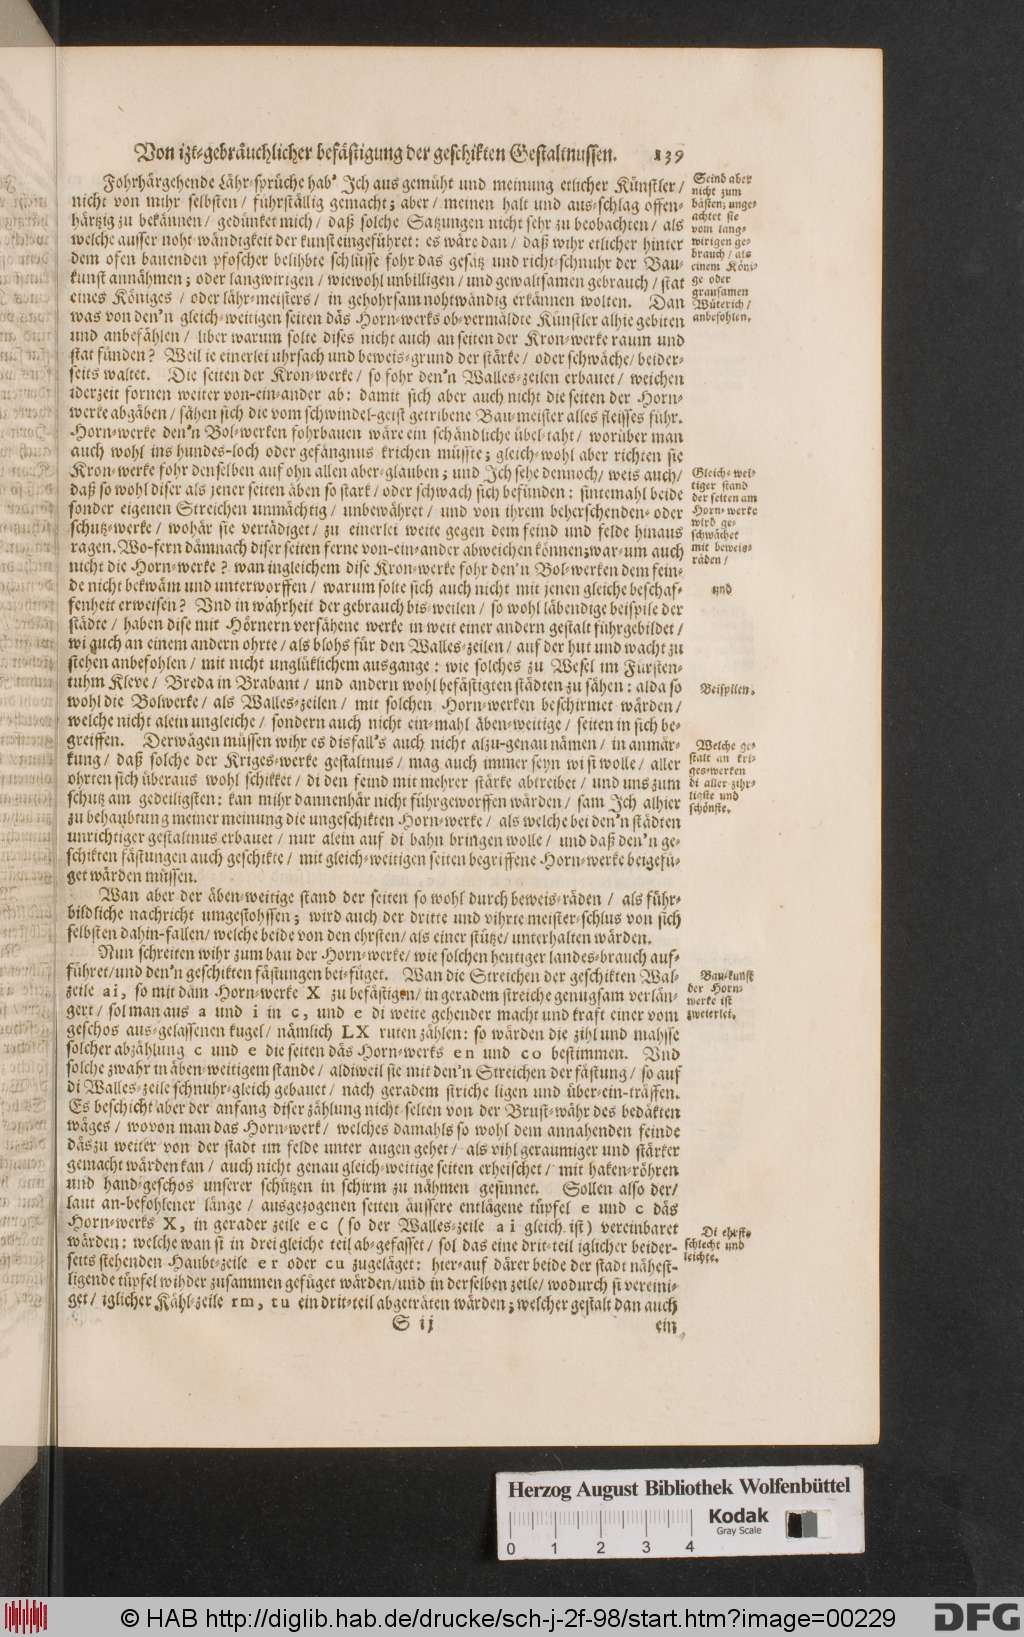 Von izt-gebräuchlicher befästigung der geschikten Gestaltnussen. 139
Fohrhärgehende Lähr-sprüche hab' Ich aus gemüht und meinung etlicher Künstler /
nicht von mihr selbsten / führställig gemacht; aber / meinen halt und aus-schlag offen-
härtzig zu bekännen / gedünket mich / daß solche Satzungen nicht sehr zu beobachten / als
welche ausser noht wändigkeit der kunst eingeführet: es wäre dan / daß wihr etlicher hinter
dem ofen bauenden pfoscher belihbte schlüsse fohr das gesätz und richt-schnuhr der Bau-
kunst annähmen; oder langwirigen / wiewohl unbilligen / und gewaltsamen gebrauch / stat
eines Königes / oder lähr-meisters / in gehohrsam nohtwändig erkännen wolten. Dan
was von den'n gleich-weitigen seiten däs Horn-werks ob-vermäldte Künstler alhie gebiten
und anbefählen / liber warum solte dises nicht auch an seiten der Kron-werke raum und
stat fünden? Weil ie einerlei uhrsach und beweis-grund der stärke / oder schwäche / beider-
seits waltet. Die seiten der Kron-werke / so fohr den'n Walles-zeilen erbauet / weichen
iderzeit fornen weiter von-ein-ander ab: damit sich aber auch nicht die seiten der Horn-
werke abgäben / sähen sich die vom schwindel-geist getribene Bau-meister alles fleisses führ.
Horn-werke den'n Bol-werken fohrbauen wäre ein schändliche übel-taht / worüber man
auch wohl ins hundes-loch oder gefängnus krichen müsste; gleich-wohl aber richten sie
Kron-werke fohr denselben auf ohn allen aber-glauben; und Ich sehe dennoch / weis auch /
daß so wohl diser als jener seiten äben so stark / oder schwach sich befünden: sintemahl beide
sonder eigenen Streichen unmächtig / unbewähret / und von ihrem beherschenden- oder
schutz-werke / wohär sie vertädiget / zu einerlei weite gegen dem feind und felde hinaus
ragen. Wo-fern dämnach diser seiten ferne von-ein-ander abweichen können; war-um auch
nicht die Horn-werke? wan ingleichem dise Kron-werke fohr den'n Bol-werken dem fein-
de nicht bekwäm und unterworffen / warum solte sich auch nicht mit jenen gleiche beschaf-
fenheit erweisen? Und in wahrheit der gebrauch bis-weilen / so wohl läbendige beispile der
städte / haben dise mit Hörnern versähene werke in weit einer andern gestalt führgebildet /
wi auch an einem andern ohrte / als blohs für den Walles-zeilen / auf der hut und wacht zu
stehen anbefohlen / mit nicht unglüklichem ausgange: wie solches zu Wesel im Fürsten-
tuhm Kleve / Breda in Brabant / und andern wohl befästigten städten zu sähen: alda so
wohl die Bolwerke / als Walles-zeilen / mit solchen Horn-werken beschirmet wärden /
welche nicht alein ungleiche / sondern auch nicht ein-mahl äben-weitige / seiten in sich be-
greiffen. Derwägen müssen wihr es disfall's auch nicht alzu-genau nämen / in anmär-
kung / daß solche der Kriges-werke gestaltnus / mag auch immer seyn wi si wolle / aller
ohrten sich überaus wohl schikket / di den feind mit mehrer stärke abtreibet / und uns zum
schutz am gedeiligsten: kan mihr dannenhär nicht führgeworffen wärden / sam Ich alhier
zu behaubtung meiner meinung die ungeschikten Horn-werke / als welche bei den'n städten
unrichtiger gestaltnus erbauet / nur alein auf di bahn bringen wolle / und daß den'n ge-
schikten fästungen auch geschikte / mit gleich-weitigen seiten begriffene Horn-werke beigefü-
get wärden müssen.
Wan aber der äben-weitige stand der seiten so wohl durch beweis-räden / als führ-
bildliche nachricht umgestohssen; wird auch der dritte und vihrte meister-schlus von sich
selbsten dahin-fallen / welche beide von den ehrsten / als einer stütze / unterhalten wärden.
Nun schreiten wihr zum bau der Horn-werke / wie solchen heutiger landes-brauch auf-
führet / und den'n geschikten fästungen bei-füget. Wan die Streichen der geschikten Wal-
zeile ai, so mit däm Horn-werke X zu befästigen / in geradem streiche genugsam verlän-
gert / sol man aus a und i in c, und e di weite gehender macht und kraft einer vom
geschos aus-gelassenen kugel / nämlich LX ruten zählen: so wärden die zihl und mahsse
solcher abzählung c und e die seiten däs Horn-werks en und co bestimmen. Und
solche zwahr in äben-weitigem stande / aldiweil sie mit den'n Streichen der fästung / so auf
di Walles-zeile schnuhr-gleich gebauet / nach geradem striche ligen und über-ein-träffen.
Es beschicht aber der anfang diser zählung nicht selten von der Brust-währ des bedäkten
wäges / wovon man das Horn-werk / welches damahls so wohl dem annahenden feinde
däszu weiter von der stadt im felde unter augen gehet / als vihl geraumiger und stärker
gemacht wärden kan / auch nicht genau gleich-weitige seiten erheischet / mit haken-röhren
und hand-geschos unserer schützen in schirm zu nähmen gesinnet. Sollen also der /
laut an-befohlener länge / ausgezogenen seiten äussere entlägene tüpfel e und c däs
Horn-werks X, in gerader zeile ec (so der Walles-zeile ai gleich ist) vereinbaret
wärden: welche wan si in drei gleiche teil ab-gefasset / sol das eine drit-teil iglicher beider-
seits stehenden Haubt-zeile er oder cu zugeläget: hier-auf därer beide der stadt nähest-
ligende tüpfel wihder zusammen gefüget wärden / und in derselben zeile / wodurch si vereini-
get / iglicher Kähl-zeile rm, tu ein drit-teil abgeträten wärden; welcher gestalt dan auch
S ij ein
Seind aber
nicht zum
bästen; unge-
achtet sie
vom lang-
wirigen ge-
brauch / als
einem Köni-
ge oder
grausamen
Wüterich /
anbefohlen.
Gleich-wei-
tiger stand
der seiten am
Horn-werke
wird ge-
schwächet
mit beweis-
räden /
und
Beispilen.
Welche ge-
stalt an kri-
ges-werken
di aller zihr-
ligste und
schönste.
Bau-kunst
der Horn-
werke ist
zweierlei.
Di ehrste
schlecht und
leichte.
Herzog August Bibliothek Wolfenbüttel
Kodak
Gray Scale
0 1 2 3 4
© HAB http://diglib.hab.de/drucke/sch-j-2f-98/start.htm?image=00229
DFG